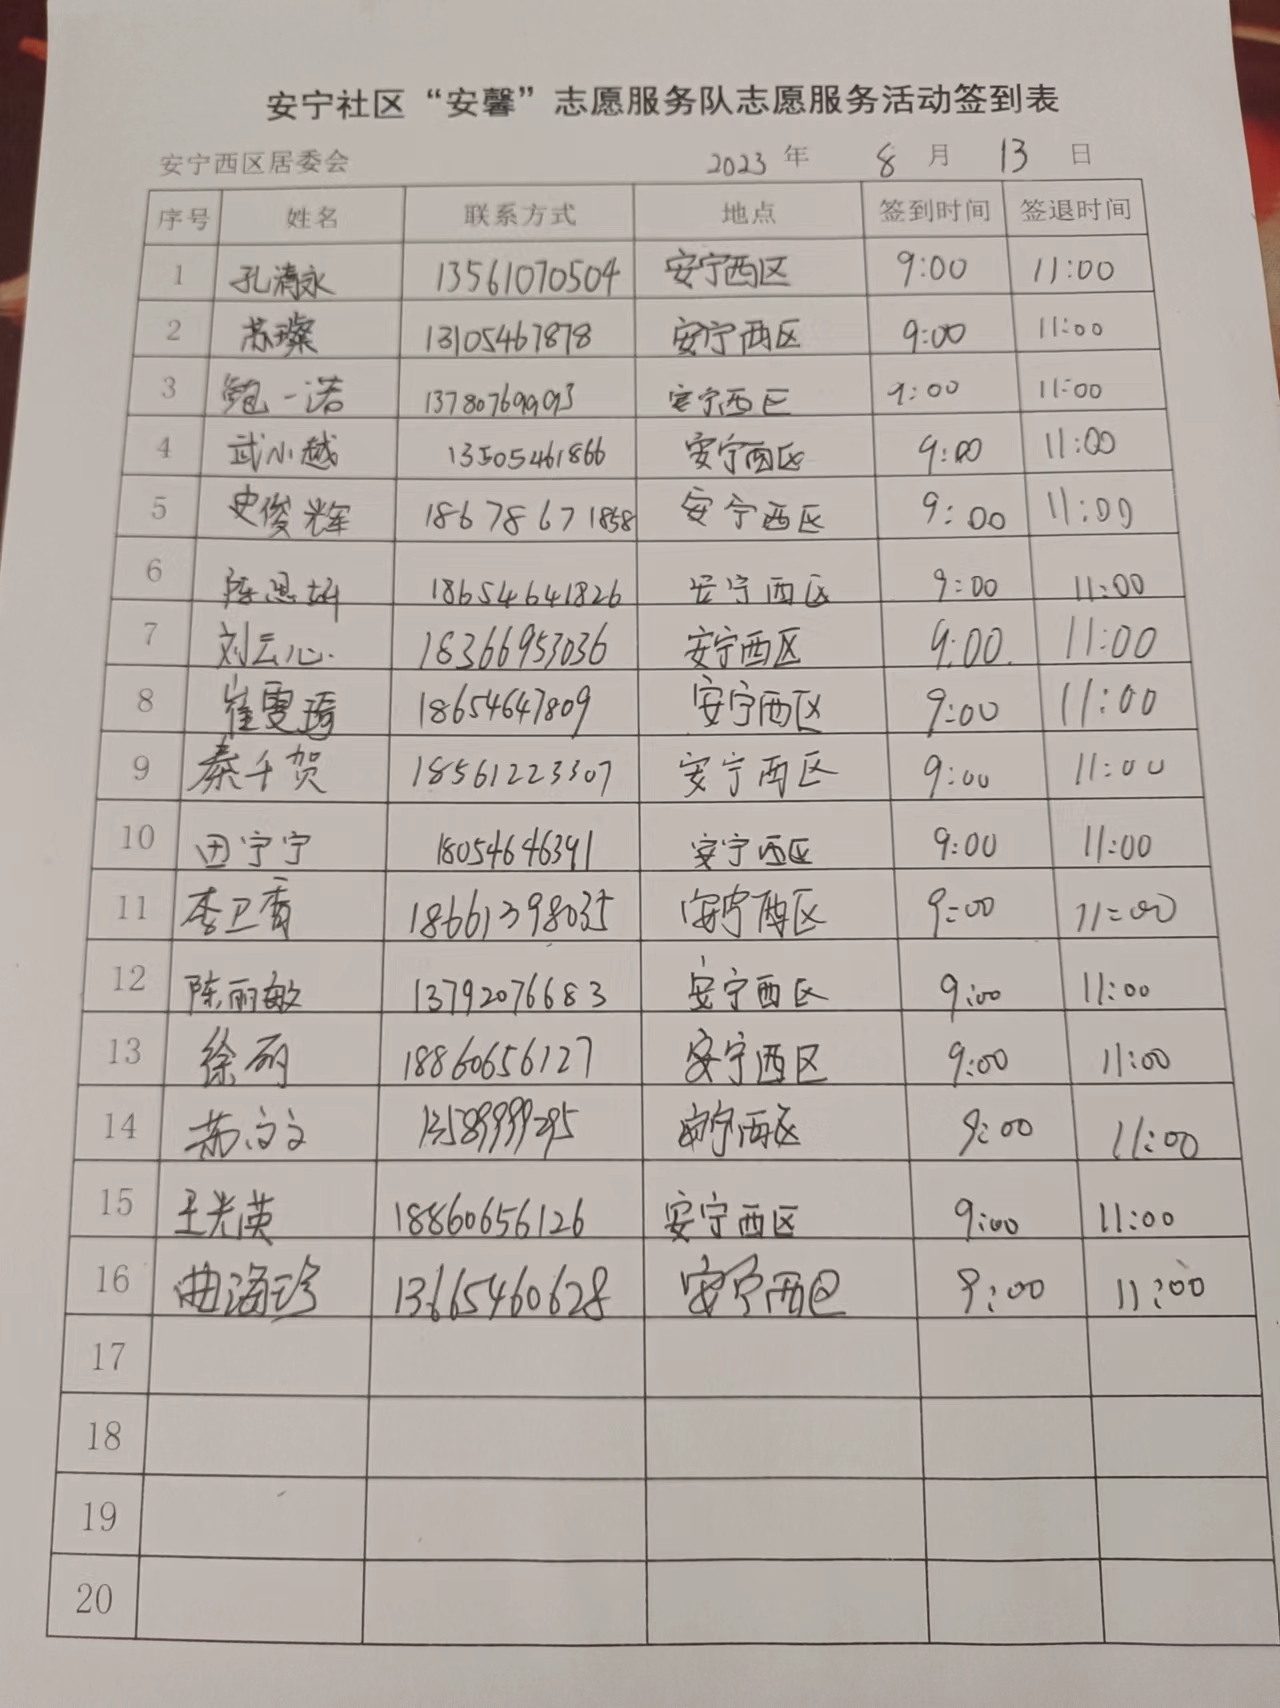 安宁社区“安馨”志愿服务队志愿服务活动签到表
安宁西区居委会 2023 年 8 月 13 日
序号 姓名 联系方式 地点 签到时间 签退时间
1 孔清永 13561070504 安宁西区 9:00 11:00
2 苏璨 13105467878 安宁西区 9:00 11:00
3 鲍一诺 13780769993 安宁西区 9:00 11:00
4 武小越 13505461866 安宁西区 9:00 11:00
5 史俊辉 18678671858 安宁西区 9:00 11:00
6 陈思 18654641826 安宁西区 9:00 11:00
7 刘云心 18366953036 安宁西区 9:00 11:00
8 崔雯琦 18654647809 安宁西区 9:00 11:00
9 秦千贺 18561223307 安宁西区 9:00 11:00
10 田宁宁 18054646391 安宁西区 9:00 11:00
11 李卫香 18661398035 安宁西区 9:00 11:00
12 陈丽敏 13792076683 安宁西区 9:00 11:00
13 徐丽 18860656127 安宁西区 9:00 11:00
14 苏文文 13589999295 安宁西区 9:00 11:00
15 王光英 18860656126 安宁西区 9:00 11:00
16 曲海珍 13665460628 安宁西区 9:00 11:00
17
18
19
20